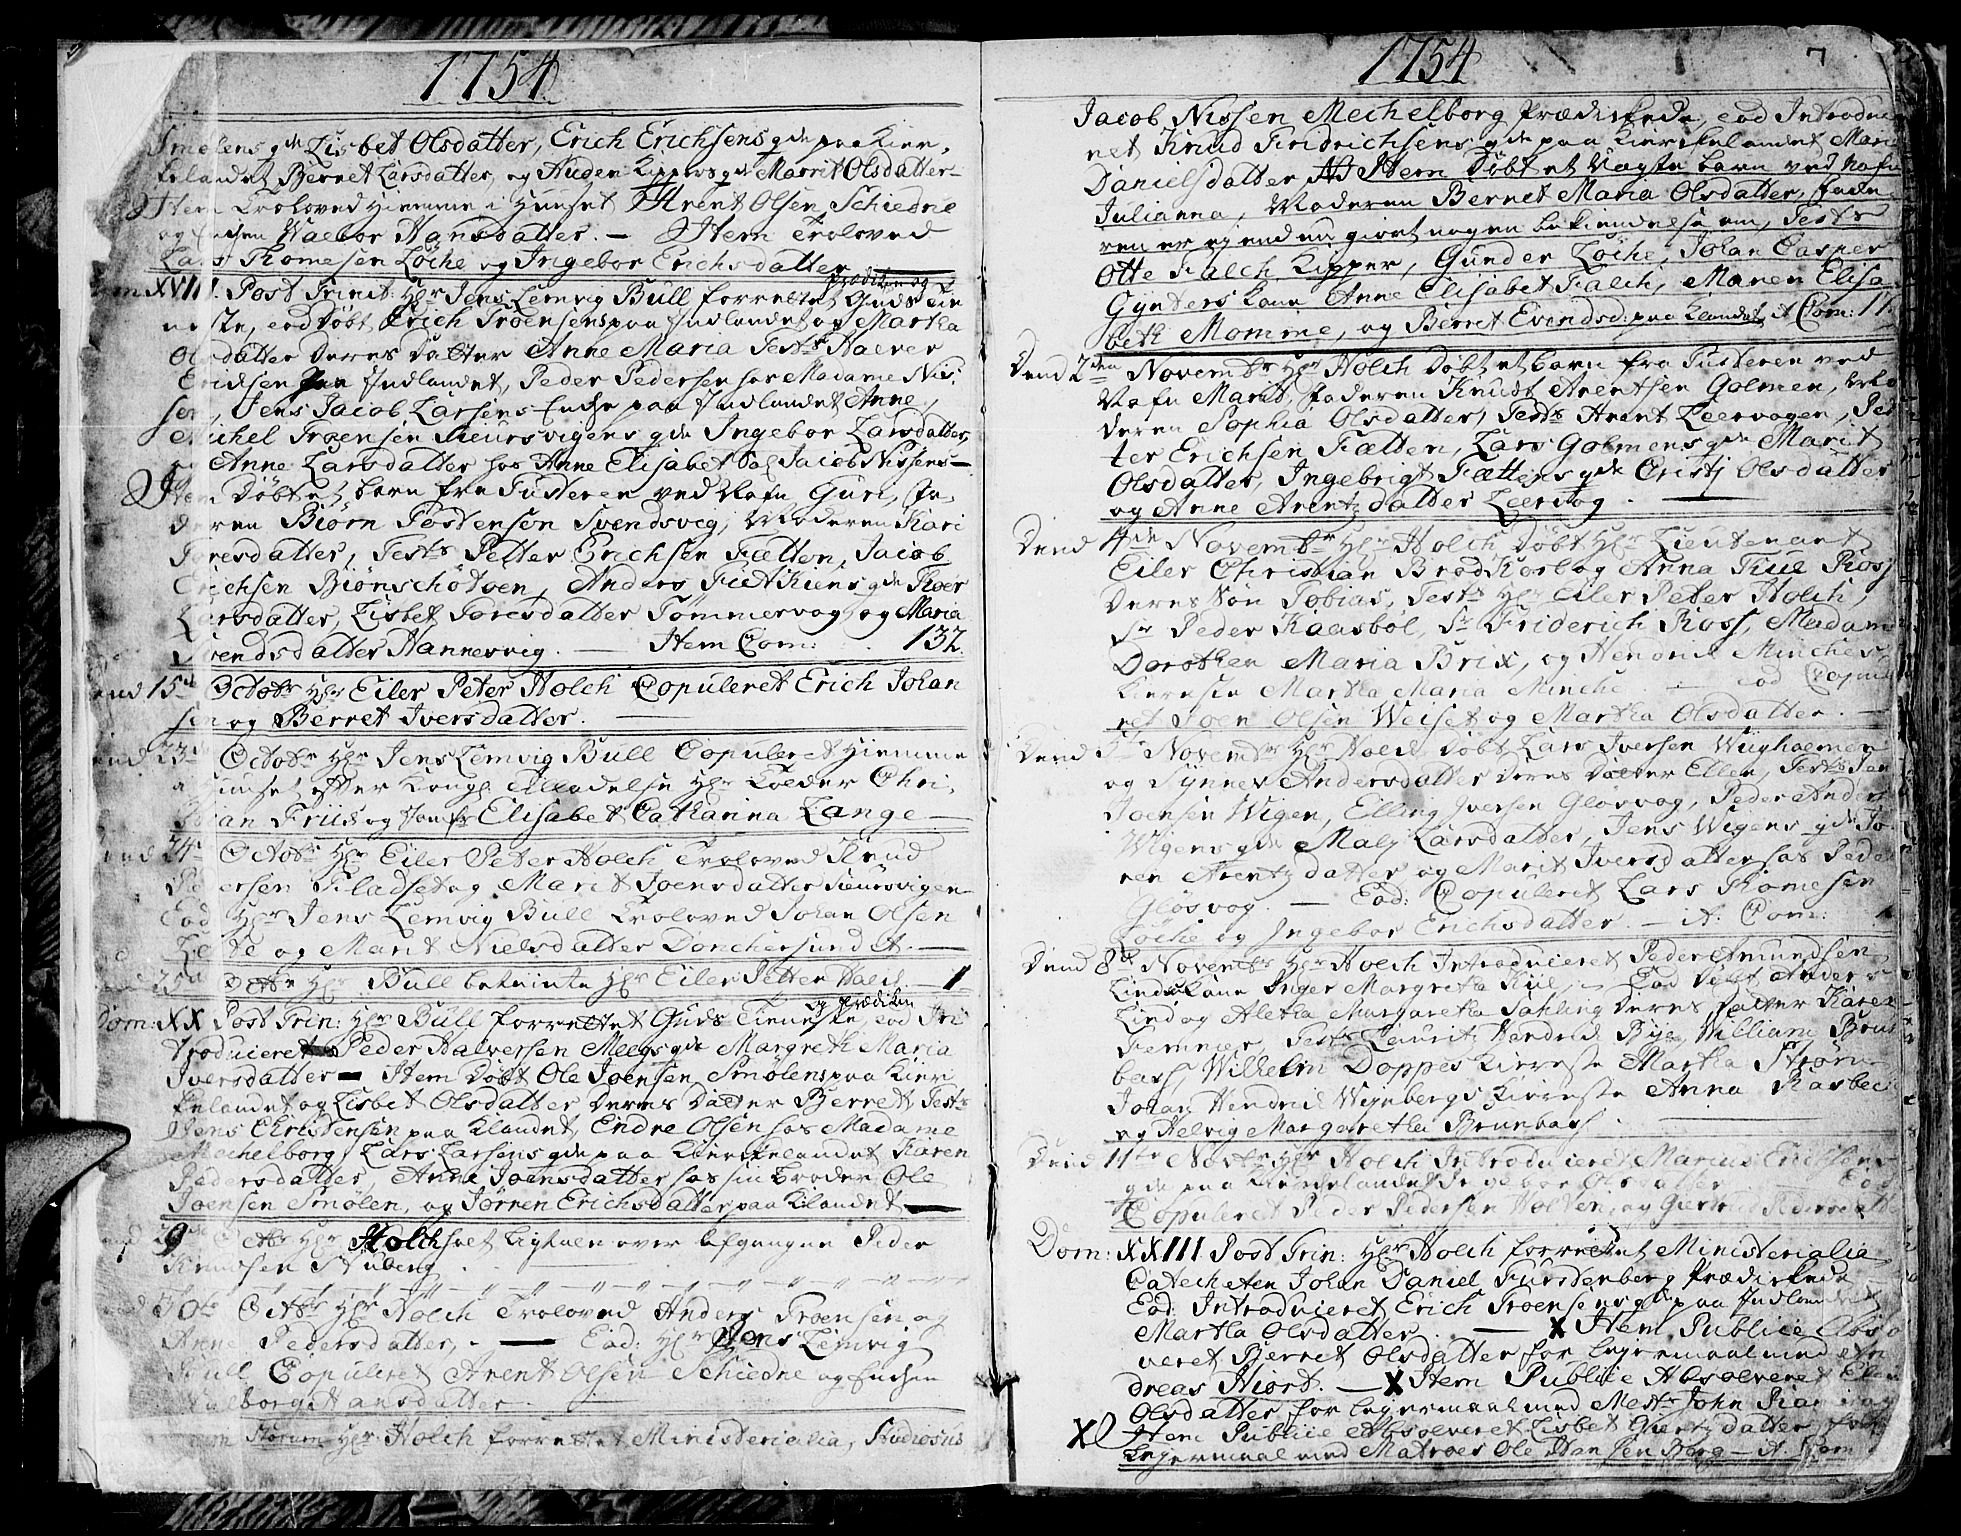 1754
Smølens qde Lisbet Olsdatter, Erich Erichsens qde paa Kier,
kelandet Berret Larsdatter, og Auden Kippers qde Marrit Olsdatter
Item Troloved Hiemme i Huuset Arent Olsen Schiedne
og Enchen Walbor Hansdatter. — Item Troloved
Lars Thomesen Løche og Ingebor Erichsdatter
Dom: XVIII. Post Trinit: Hr Jens Lemvig Bull forrettet Guds tie
neste, eod Døbt Erich Troensens paa Indlandet og Martha
Olsdatter deres datter Anne Maria Tests Halver
Erichsen paa Indlandet, Peder Pedersen hos Madame Nis,
sen, Jens Jacob Larsens Enche paa Indlandet Anne,
Michel Troensen Sieursvigens qde Ingebor Larsdatter,
og Anne Larsdatter hos Anne Elisabet Sal Jacob Nissens —
Item Døbt et barn fra Tusteren ved Nafn Guri, fa,
deren Biørn Tostensen Svendsvog, Moderen Kari
Toresdatter, Tests Petter Erichsen Fætten, Jacob
Erichsen Biønschotven, Anders Fiets qde Roer
Larsdatter, Lisbet Toresdatter Tømmervog, og Maria
Svendsdatter Hannesvig. — Item Com: 132.
Dend 15de Octobr Hr Eiler Peter Holch Copuleret Erich Johan
sen og Berret Iversdatter. —
Dend 23de Octobr Hr Jens Lemvig Bull Copuleret Hiemme
i Huuset efter Kongl: Tilladelse Hr Colder Chri,
stian Friis og Jomfr Elisabet Catharina Lange —
Dend 24de Octobr Hr Eiler Peter Holch Troloved Knud
Pedersen Fladset og Marit Joensdatter Sieursvigen —
Eod Hr Jens Lemvig Bull Troloved Johan Olsen
og Marit Nielsdatter Donchersund
Dend 25de Octbr Hr Bull betiente Hr Eiler Petter Holch — 1
og prædiken
Dom: XX Post Trin: Hr Bull forrettet Guds Tieneste, eod In
troducieret Peder Halversen Meegs qde Margreth Maria
Iversdatter — Item Døbt Ole Joensen Smølens paa Kier
kelandet og Lisbet Olsdatter deres datter Berret, Tests
Jens Christensen paa Klandet, Endre Olsen hos Madame
Mechelborg, Lars Larsens qde paa Kierkelandet Karen
Pedersdatter, Anne Joensdatter hos sin broder Ole
Joensen Smølen, og Jørren Erichsdatter paa Klandet —
Dend 29de Octbr Hr Holch holt Ligtale over afgangne Peder
Knudsen Stuberg
Dend 30te Octbr Hr Holch Troloved Anders Troensen og
Anne Pedersdatter, — Eod: Hr Jens Lemvig
Bull Copuleret Arent Olsen Schiedne og Enchen
Walborg Hansdatter —
Hr Holch forrettet Ministerialia, Studiosus
1754
7
Jacob Nissen Mechelborg Prædikede, eod Introducie
ret Knud Fridrichsens qde paa Kierkelandet Maria
Danielsdatter Item Døbt et Uægte barn ved Nafn
Julianna, Moderen Berret Maria Olsdatter, fade
ren er ej endnu giort nogen bekiendelse om, Tests
Otte Falch Kipper, Gunder Løche, Johan Casper
Gynters Kone Anne Elisabet Falch, Maren Elisa
beth Momme, og Berret Evendsd: paa Klandet, it Com: 17
Dend 2den Novembr Hr Holch Døbt et barn fra Tusteren ved
Nafn Marit, faderen Knudt Arentsen Golmen, Mo
deren Sophia Olsdatter, Tests Arent Leervogen, Pet
ter Erichsen Fætten, Lars Golmens qde Marit
Olsdatter, Ingebrigt Fættens qde Cristj Olsdatter
og Anne Arentzdatter Leervog. —
Dend 4de Novembr Hr Holch Døbt Hr Lieutenant
Eiler Christian Brodkorb og Anna Kiil Ross
deres Søn Tobias, Tests Hr Eiler Peter Holch,
Sr Peder Kaasbøl, Sr Friderich Ross, Madam
Dorothea Maria Brix, og Hendrik Minches
Kiereste Martha Maria Minche. — eod Copule
ret Joen Olsen Weiset og Martha Olsdatter. —
Dend 5te Novembr Hr Holch Døbt Lars Iversen Wiigholmen
og Synnev Andersdatter deres datter Ellen, Tests Jen
Joensen Wigen, Elling Iversen Gløsvog, Peder Anders
Wigens qde Malj Larsdatter, Jens Wigens qde Jo
ren Arentzdatter og Marit Iversdatter hos Peder
Gløsvog. — Eod: Copuleret Lars Thomesen
Løche og Ingebor Erichsdatter. — it: Com:
Dend 8de Novembr Hr Holch Introducieret Peder Amundsen
Linds Kone Inger Margreta Kiil, — Eod Døbt Anders
Lind og Aletha Margaretha Sahling deres datter Karen
Femmer, Tests Lauritz Hendrik Bye, William Brun
bass, Wilhelm Doppes Kiereste Martha Strøm
Johan Hendrik Weinbergs Kiereste Anna Rasbech
og Helvig Margaretha Brunbass. —
Dend 11te Novbr Hr Holch Introducieret Marius Erichsens
qde paa Kierkelandet Ingebor Olsdatter — Eod
Copuleret Peder Pedersen Holten og Giertrud Pedersdatter
Dom: XXIII Post Trin: Hr Holch forrettet Ministerialia
Catecheten Johan Daniel Fürstenberg Prædikede
Eod: Introducieret Erich Troensens qde paa Indlandet
Martha Olsdatter. — X Item Publice Absol
veret Berret Olsdatter for Legermaal med An
dreas Hiort. — X Item Publice Absolveret Elen
Olsdatter for Legermaal med Mestr John
X Item Publice Absolveret Lisbet Giertzdatter for
Legermaal med Matroes Ole Hansen Borg — it Com